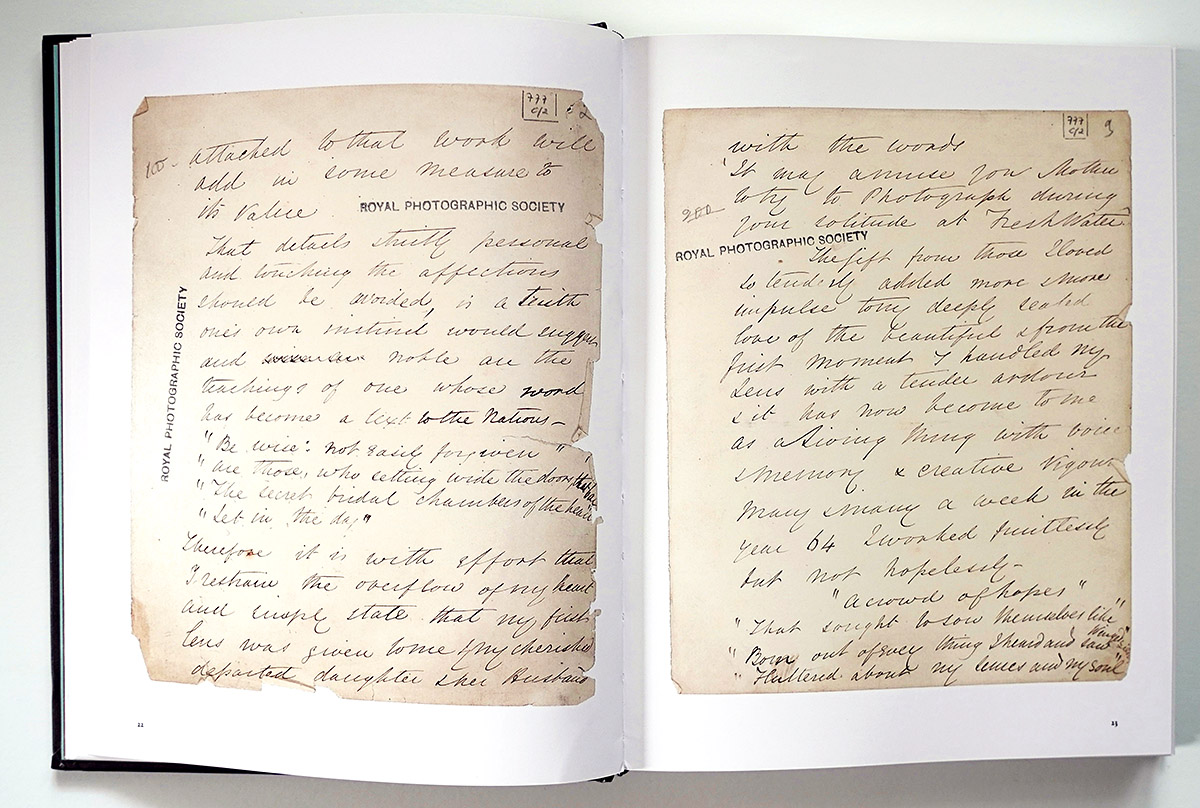 777
C/2
2
100-
attached to that work will
add in some measure to
its value
ROYAL PHOTOGRAPHIC SOCIETY
That details strictly personal
and touching the affections
should be avoided, is a truth
one's own instinct would suggest
and noble are the
teachings of one whose word
has become a text to the Nations—
"Be wise: not easily forgiven"
"are those, who setting wide the doors, that bar
"The secret bridal chambers of the heart
"Let in the day"
Therefore it is with effort that
I restrain the overflow of my heart
and simply state that my first
lens was given to me by my cherished
departed daughter & her Husband
ROYAL PHOTOGRAPHIC SOCIETY
22
777
C/2
3
with the words
"It may amuse you Mother
to try to Photograph during
your solitude at FreshWater
200
ROYAL PHOTOGRAPHIC SOCIETY
The gift from those I loved
so tenderly added more & more
impulse to my deeply seated
love of the beautiful & from the
first moment I handled my
lens with a tender ardour
& it has now become to me
as a living thing with voice
& memory & creative vigour
Many & many a week in the
year 64 I worked fruitlessly
but not hopelessly—
"a crowd of hopes"
"That sought to sow themselves like winged
"Born out of every thing I heard and saw
"Fluttered about my senses and my soul
23